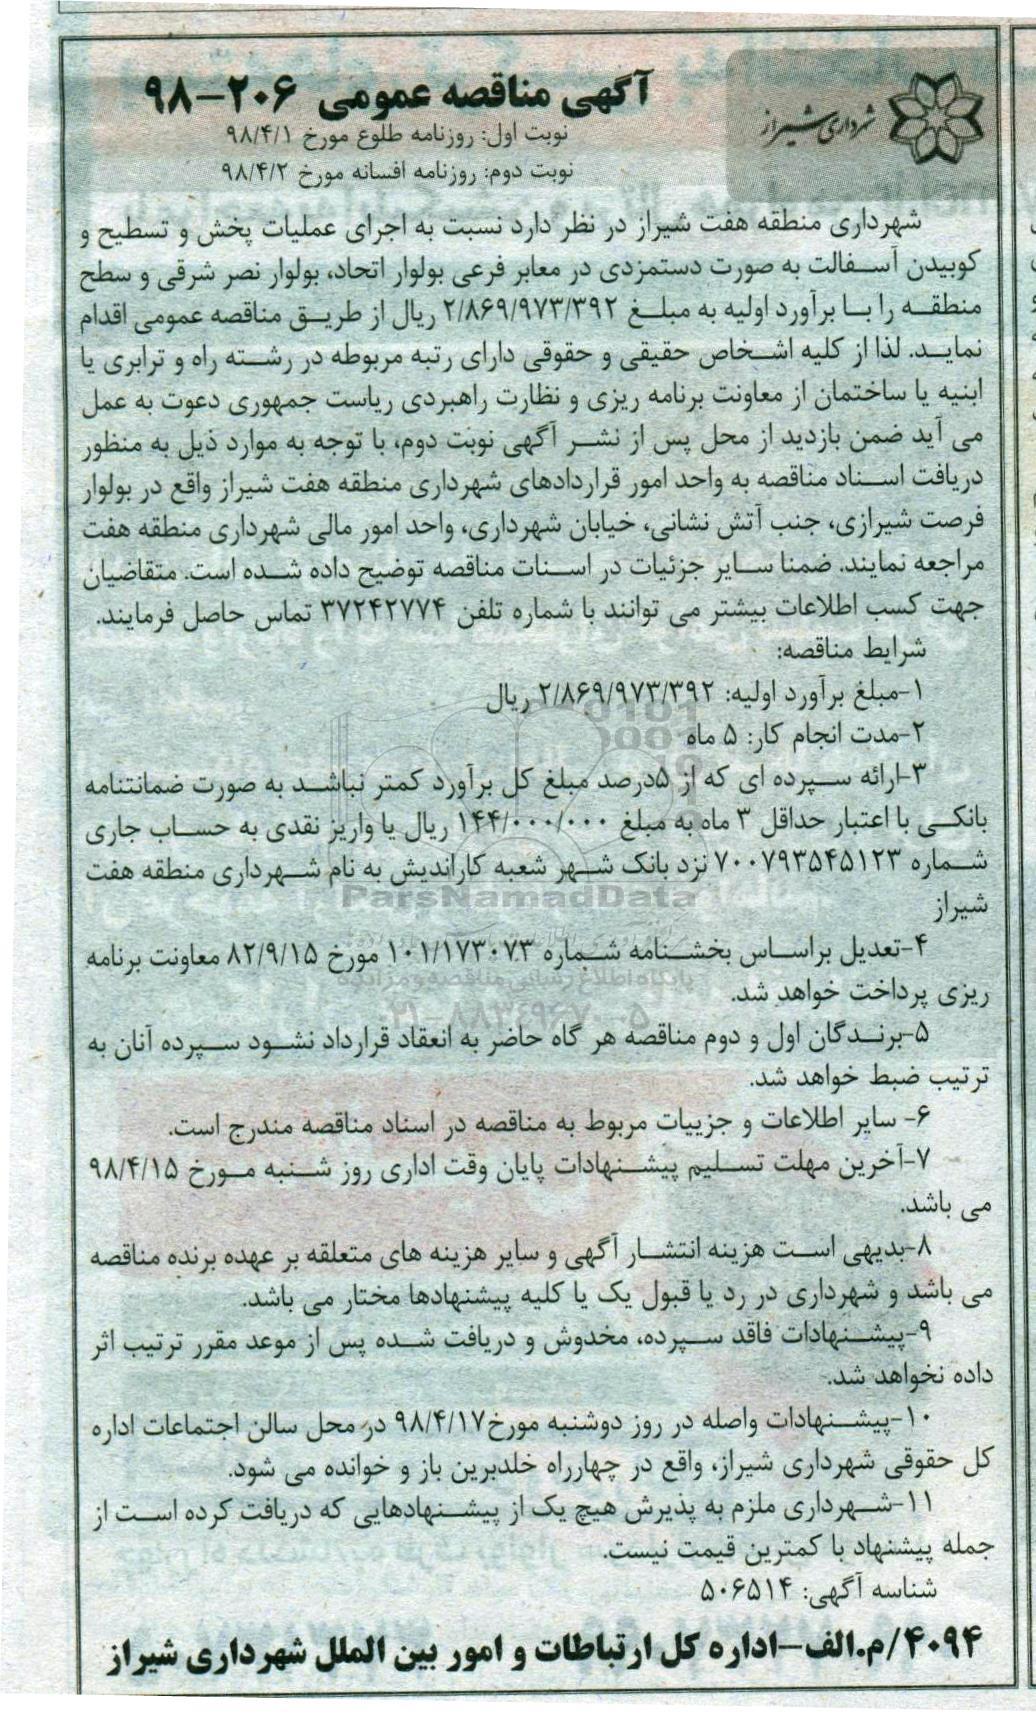 شهرداری شیراز
آگهی مناقصه عمومی ۲۰۶-۹۸
نوبت اول: روزنامه طلوع مورخ ۹۸/۴/۱
نوبت دوم: روزنامه افسانه مورخ ۹۸/۴/۲
شهرداری منطقه هفت شیراز در نظر دارد نسبت به اجرای عملیات پخش و تسطیح و
کوبیدن آسفالت به صورت دستمزدی در معابر فرعی بولوار اتحاد، بولوار نصر شرقی و سطح
منطقه را با برآورد اولیه به مبلغ ۲/۸۶۹/۹۷۳/۳۹۲ ریال از طریق مناقصه عمومی اقدام
نماید. لذا از کلیه اشخاص حقیقی و حقوقی دارای رتبه مربوطه در رشته راه و ترابری یا
ابنیه یا ساختمان از معاونت برنامه ریزی و نظارت راهبردی ریاست جمهوری دعوت به عمل
می آید ضمن بازدید از محل پس از نشر آگهی نوبت دوم، با توجه به موارد ذیل به منظور
دریافت اسناد مناقصه به واحد امور قراردادهای شهرداری منطقه هفت شیراز واقع در بولوار
فرصت شیرازی، جنب آتش نشانی، خیابان شهرداری، واحد امور مالی شهرداری منطقه هفت
مراجعه نمایند. ضمنا سایر جزئیات در اسنات مناقصه توضیح داده شده است. متقاضیان
جهت کسب اطلاعات بیشتر می توانند با شماره تلفن ۳۷۲۴۲۷۷۴ تماس حاصل فرمایند.
شرایط مناقصه:
۱-مبلغ برآورد اولیه: ۲/۸۶۹/۹۷۳/۳۹۲ ریال
۲-مدت انجام کار: ۵ ماه
۳-ارائه سپرده ای که از ۵درصد مبلغ کل برآورد کمتر نباشد به صورت ضمانتنامه
بانکی با اعتبار حداقل ۳ ماه به مبلغ ۱۴۴/۰۰۰/۰۰۰ ریال یا واریز نقدی به حساب جاری
شماره ۷۰۰۷۹۳۵۴۵۱۲۳ نزد بانک شهر شعبه کاراندیش به نام شهرداری منطقه هفت
شیراز
ParsNamadData
۴-تعدیل براساس بخشنامه شماره ۱۰۱/۱۷۳۰۷۳ مورخ ۸۲/۹/۱۵ معاونت برنامه
پایگاه اطلاع رسانی مناقصه و مزایده
ریزی پرداخت خواهد شد.
۰۲۱-۸۸۳۴۹۶۷۰-۵
۵-برندگان اول و دوم مناقصه هر گاه حاضر به انعقاد قرارداد نشود سپرده آنان به
ترتیب ضبط خواهد شد.
۶- سایر اطلاعات و جزییات مربوط به مناقصه در اسناد مناقصه مندرج است.
۷-آخرین مهلت تسلیم پیشنهادات پایان وقت اداری روز شنبه مورخ ۹۸/۴/۱۵
می باشد.
۸-بدیهی است هزینه انتشار آگهی و سایر هزینه های متعلقه بر عهده برنده مناقصه
می باشد و شهرداری در رد یا قبول یک یا کلیه پیشنهادها مختار می باشد.
۹-پیشنهادات فاقد سپرده، مخدوش و دریافت شده پس از موعد مقرر ترتیب اثر
داده نخواهد شد.
۱۰-پیشنهادات واصله در روز دوشنبه مورخ۹۸/۴/۱۷ در محل سالن اجتماعات اداره
کل حقوقی شهرداری شیراز، واقع در چهارراه خلدبرین باز و خوانده می شود.
۱۱-شهرداری ملزم به پذیرش هیچ یک از پیشنهادهایی که دریافت کرده است از
جمله پیشنهاد با کمترین قیمت نیست.
شناسه آگهی: ۵۰۶۵۱۴
۴۰۹۴/م.الف-اداره کل ارتباطات و امور بین الملل شهرداری شیراز